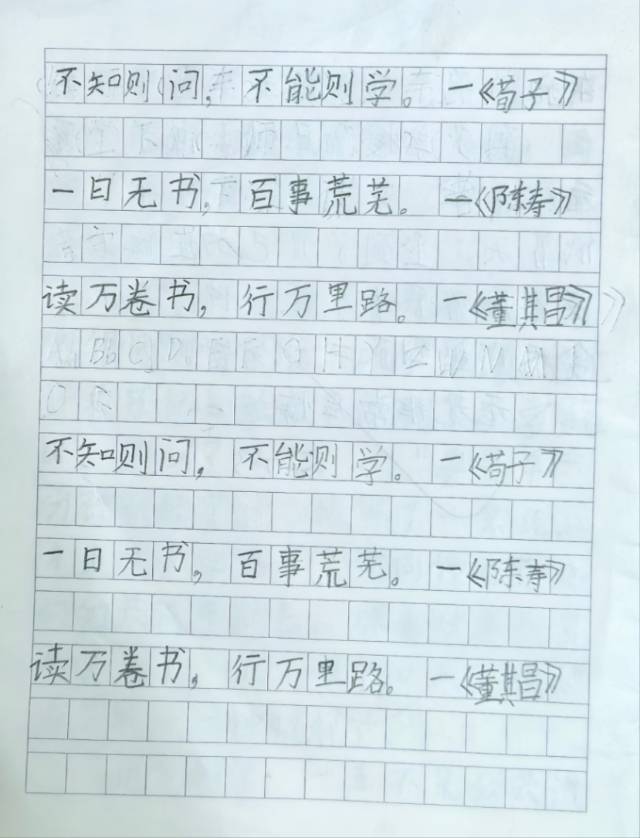 不知则问，不能则学。一《荀子》
一日无书，百事荒芜。一《陈寿》
读万卷书，行万里路。一《董其昌》
不知则问，不能则学。一《荀子》
一日无书，百事荒芜。一《陈寿》
读万卷书，行万里路。一《董其昌》